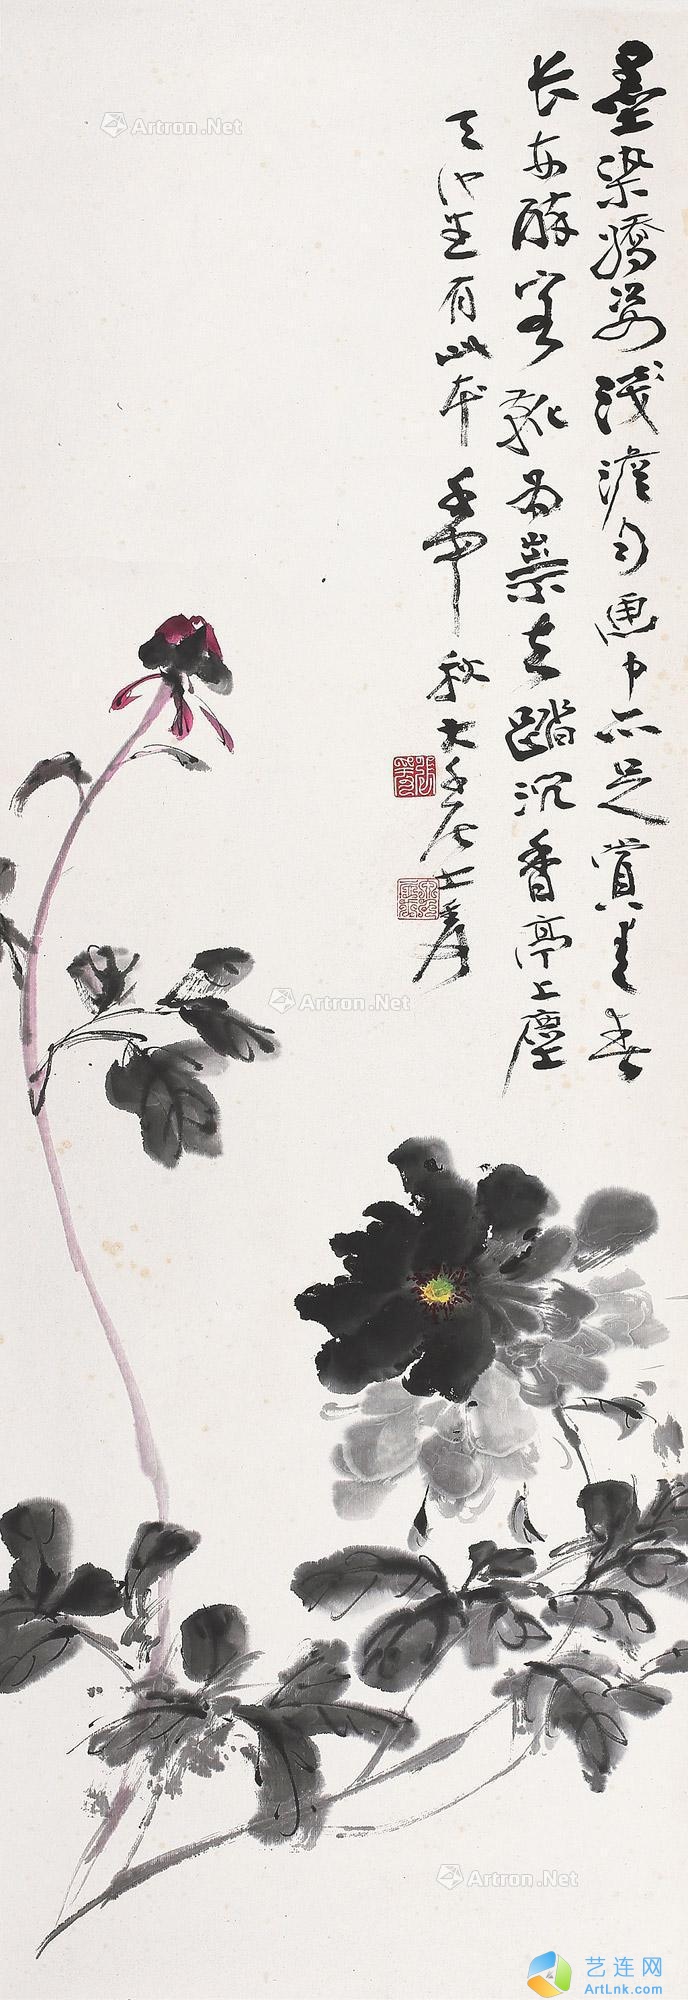 墨染嬌姿淺澹勻画中亦足賞青春
長安醉客靴為祟去踏沉香亭上塵
天池生有此本 壬申秋大千居士爰
Artron.Net
Artron.Net
Artron.Net
艺连网
ArtLnk.com